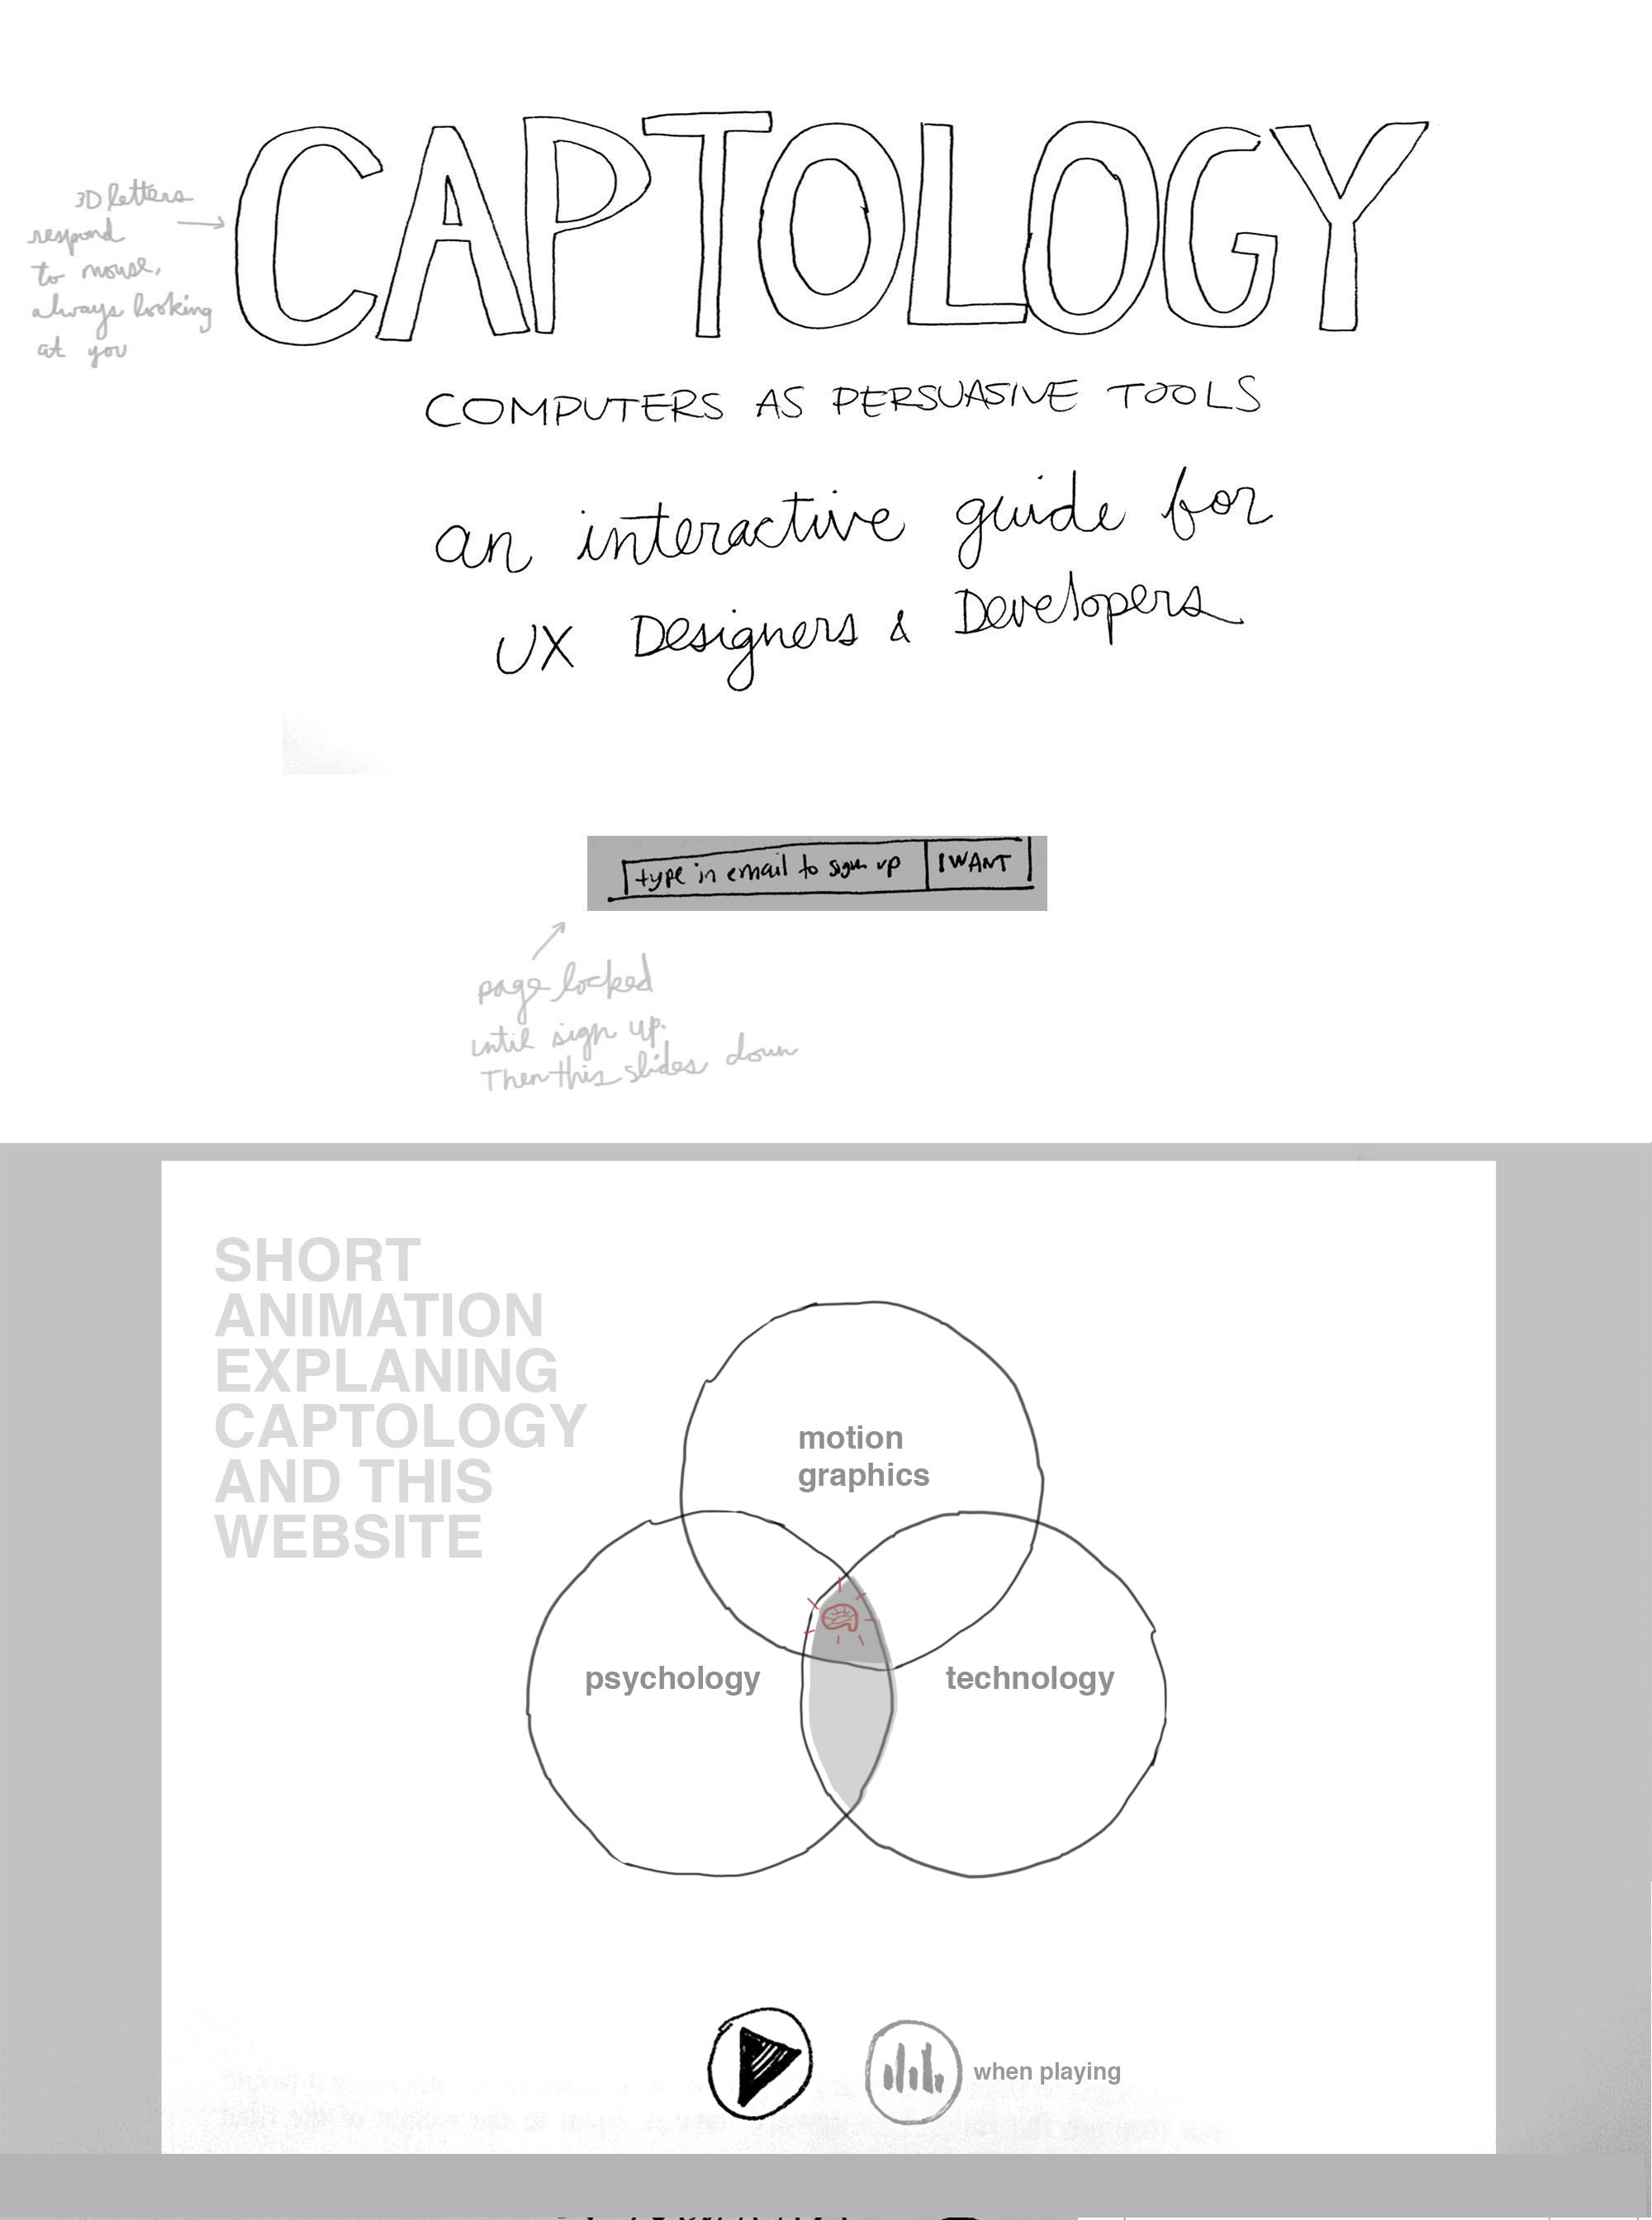 CAPTOLOGY
3D letters
respond
to mouse,
always looking
at you
COMPUTERS AS PERSUASIVE TOOLS
an interactive guide for
UX Designers & Developers
type in email to sign up
I WANT
page locked
until sign up.
Then this slides down
SHORT
ANIMATION
EXPLANING
CAPTOLOGY
AND THIS
WEBSITE
motion
graphics
psychology
technology
when playing